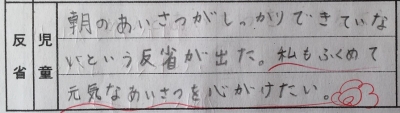 児童
反省
朝のあいさつがしっかりできていな
いという反省が出た。私もふくめて
元気なあいさつを心がけたい。